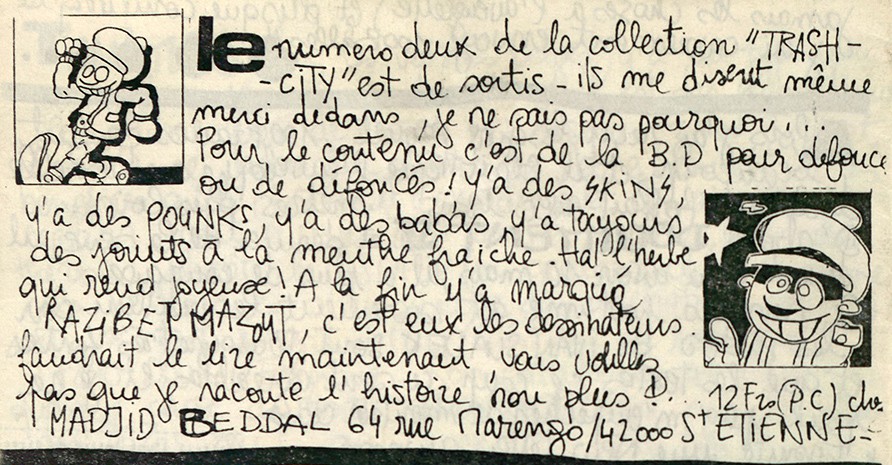 le numero deux de la collection "TRASH-
-CITY" est de sortis - ils me disent même
merci dedans, je ne sais pas pourquoi...
Pour le contenu c'est de la B.D pour defonce
ou de défoncés! Y'a des SKINS,
y'a des POUNKS, y'a des babas, y'a toujours
des joints à la menthe fraiche. Ha! l'herbe
qui rend joyeuse! A la fin y'a marqué
RAZIBET MAZOUT, c'est eux les dessinateurs.
faudrait le lire maintenant vous voulez
pas que je raconte l'histoire non plus! D... 12 Frs (P.C) chez
MADJID BEDDAL 64 rue Marengo/42000 St ETIENNE-